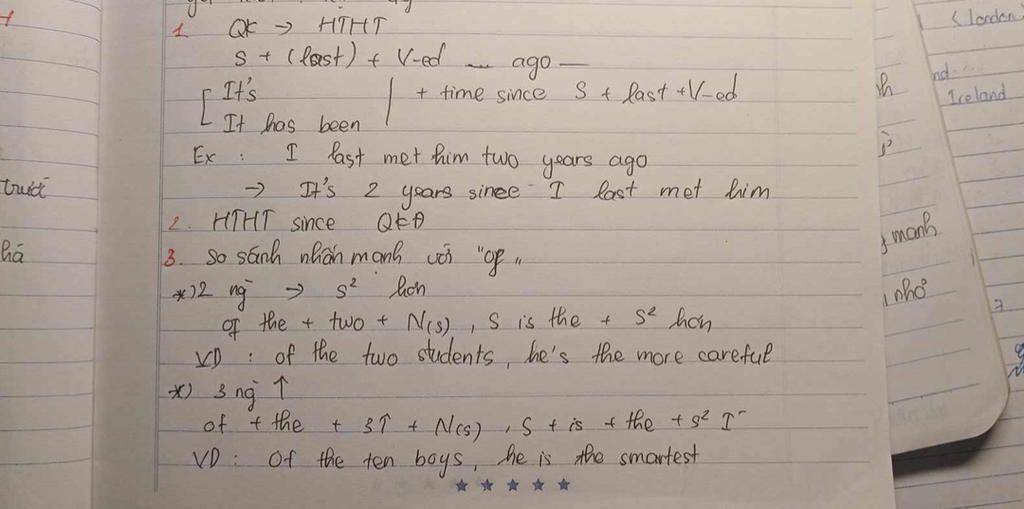 1. QK → HTHT
S + (last) + V-ed ... ago —
[ It's | + time since S + last + V-ed
[ It has been |
Ex : I last met him two years ago
→ It's 2 years since I last met him
2. HTHT since QKĐ
3. So sánh nhấn mạnh với "of"
*) 2 ng → s² hơn
of the + two + N(s), S is the + s² hơn
VD : of the two students, he's the more careful
*) 3 ng ↑
of + the + 3↑ + N(s), S + is + the + s² I
VD : Of the ten boys, he is the smartest
trước
hã
(london
nd...
Ireland
h
manh
nhỏ
7